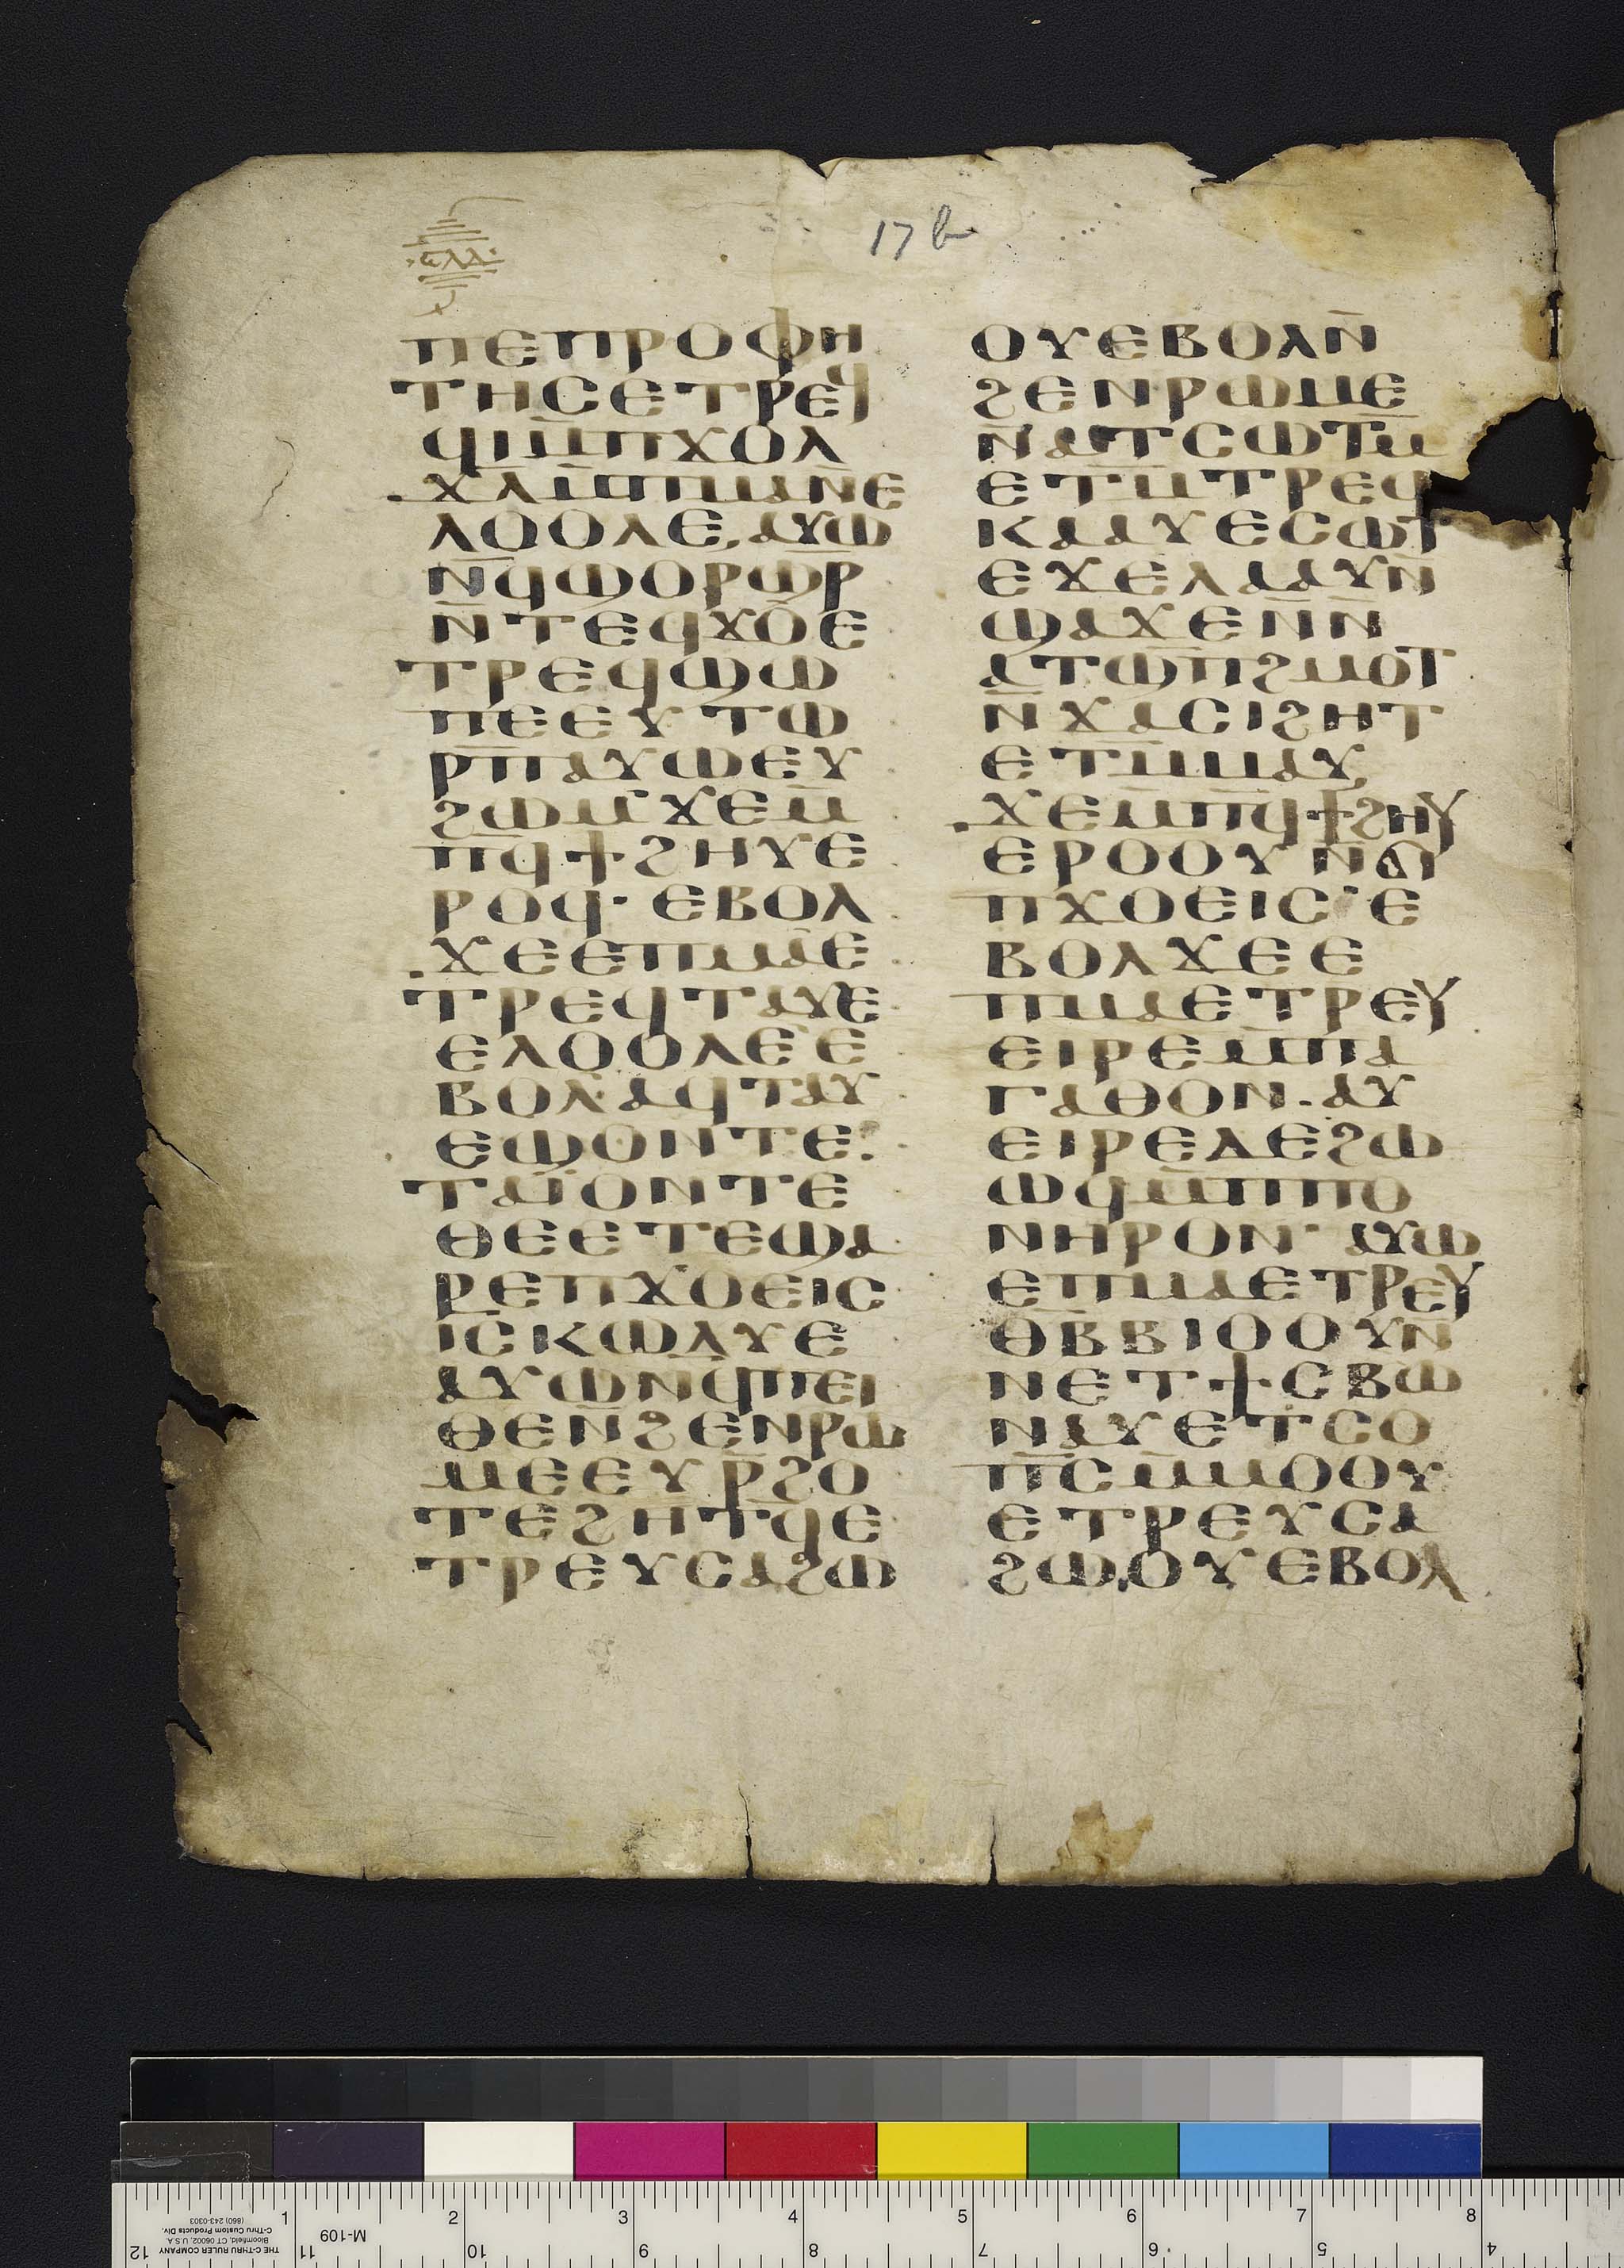 ⲥⲗⲁ
17 b
ⲡⲉⲡⲣⲟⲫⲏ
ⲧⲏⲥⲉⲧⲣⲉϥ
ϥⲓⲙ̄ⲡϫⲟⲗ
ϫⲗ̄ⲙ̄ⲡⲙⲁⲛ̄ⲉ
ⲗⲟⲟⲗⲉ. ⲁⲩⲱ
ⲛ̄ϥϣⲟⲣϣⲣ̄
ⲛ̄ⲧⲉϥϫⲟⲉ
ⲧⲣⲉϥϣⲱ
ⲡⲉⲉⲩⲧⲱ
ⲣⲡ̄ⲁⲩⲱⲉⲩ
ϩⲱⲙϫⲉⲙ̄
ⲡϥ̄ϯϩⲏⲩⲉ
ⲣⲟϥ· ⲉⲃⲟⲗ
ϫⲉⲉⲡⲙⲁⲉ
ⲧⲣⲉϥⲧⲁⲩⲉ
ⲉⲗⲟⲟⲗⲉⲉ
ⲃⲟⲗ· ⲁϥⲧⲁⲩ
ⲉϣⲟⲛⲧⲉ·
ⲧⲁⲓ̈ⲟⲛⲧⲉ
ⲑⲉⲉⲧⲉϣⲁ
ⲣⲉⲡϫⲟⲉⲓⲥ
ⲓ̄ⲥ̄ⲕⲱⲗⲩⲉ
ⲁⲩⲱⲛϥ̄ⲡⲉⲓ
ⲑⲉⲛ̄ϩⲉⲛⲣⲱ
ⲙⲉⲉⲩⲣ̄ϩⲟ
ⲧⲉϩⲏⲧϥ̄ⲉ
ⲧⲣⲉⲩⲥⲁϩⲱ
ⲟⲩⲉⲃⲟⲗⲛ̄
ϩⲉⲛⲣⲱⲙⲉ
ⲛ̄ⲁⲧⲥⲱⲧⲙ̄
ⲉⲧⲙ̄ⲧⲣⲉϥ
ⲕⲁⲁⲩⲉⲥⲱⲧ
ⲉϫⲉⲗⲁⲁⲩⲛ̄
ϣⲁϫⲉⲛ̄ⲛ̄
ⲁⲧϣⲡ̄ϩⲙⲟⲧ
ⲛ̄ϫⲁⲥⲓϩⲏⲧ
ⲉⲧⲙ̄ⲙⲁⲩ
ϫⲉⲙ̄ⲡϥ̄ϯϩⲏⲩ
ⲉⲣⲟⲟⲩⲛ̄ϭⲓ
ⲡϫⲟⲉⲓⲥ· ⲉ
ⲃⲟⲗϫⲉⲉ
ⲡⲙⲁⲉⲧⲣⲉⲩ
ⲉⲓⲣⲉⲙ̄ⲡⲁ
ⲅⲁⲑⲟⲛ. ⲁⲩ
ⲉⲓⲣⲉⲇⲉϩⲱ
ⲱϥⲙ̄ⲡⲡⲟ
ⲛⲏⲣⲟⲛ· ⲁⲩⲱ
ⲉⲡⲙⲁⲉⲧⲣⲉⲩ
ⲑⲃ̄ⲃⲓⲟⲟⲩⲛ̄
ⲛⲉⲧϯⲥⲃⲱ
ⲛⲁⲩⲉⲧⲥⲟ
ⲡⲥ̄ⲙ̄ⲙⲟⲟⲩ
ⲉⲧⲣⲉⲩⲥⲁ
ϩⲱⲟⲩⲉⲃⲟⲗ
1 2 3 4 5 6 7 8
M-109
THE C-THRU RULER COMPANY
Bloomfield, CT 06002, U.S.A.
C-Thru Custom Products Div.
(860) 243-0303
12 11 10 9 8 7 6 5 4